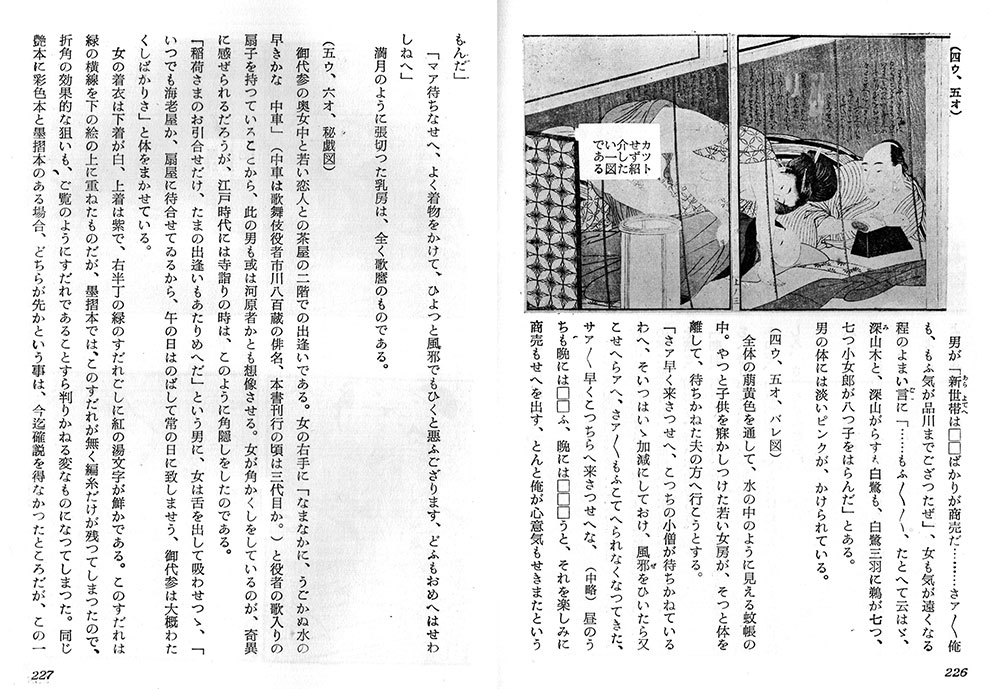 (四ウ、五オ)
カツト
せず紹
介した
い一図
である
男が「新世帯は□□ばかりが商売だ………さァ〳〵俺
も、もふ気が品川までござつたぜ」、女も気が遠くなる
程のよまい言に「……もふ〳〵〳〵、たとへて云はゞ、
深山木と、深山がらすぇ白鷺も、白鷺三羽に鵜が七つ、
七つ小女郎が八つ子をはらんだ」とある。
男の体には淡いピンクが、かけられている。
(四ウ、五オ、バレ図)
全体の萠黄色を通して、水の中のように見える蚊帳の
中。やつと子供を寐かしつけた若い女房が、そつと体を
離して、待ちかねた夫の方へ行こうとする。
「さァ早く来さつせへ、こつちの小僧が待ちかねている
わへ、そいつはいゝ加減にしておけ、風邪をひいたら又
こせへらァへ、さァ〳〵もふこてへられなくなつてきた、
サァ〳〵早くこつちらへ来さつせへな、(中略)昼のう
ちも晩には□□ふ、晩には□□□うと、それを楽しみに
商売もせへを出す、とんと俺が心意気もせきまたという
226
もんだ」
「マア待ちなせへ、よく着物をかけて、ひよつと風邪でもひくと悪ふござります、どふもおめへはせわ
しねへ」
満月のように張切つた乳房は、全く歌麿のものである。
(五ウ、六オ、秘戯図)
御代参の奥女中と若い恋人との茶屋の二階での出逢いである。女の右手に「なまなかに、うごかぬ水の
早きかな 中車」(中車は歌舞伎役者市川八百蔵の俳名、本書刊行の頃は三代目か。)と役者の歌入りの
扇子を持つていることから、此の男も或は河原者かとも想像させる。女が角かくしをしているのが、奇異
に感ぜられるだろうが、江戸時代には寺詣りの時は、このように角隠しをしたのである。
「稲荷さまのお引合せだけ、たまの出逢いもあたりめへだ」という男に、女は舌を出して吸わせつゝ、「
いつでも海老屋か、扇屋に待合せてゐるから、午の日はのばして常の日に致しませう、御代参は大概わた
くしばかりさ」と体をまかせている。
女の着衣は下着が白、上着は紫で、右半丁の緑のすだれごしに紅の湯文字が鮮かである。このすだれは
緑の横線を下の絵の上に重ねたものだが、墨摺本では、このすだれが無く編糸だけが残つてしまつたので、
折角の効果的な狙いも、ご覧のようにすだれであることすら判りかねる変なものになつてしまつた。同じ
艶本に彩色本と墨摺本のある場合、どちらが先かという事は、今迄確説を得なかつたところだが、この一
227